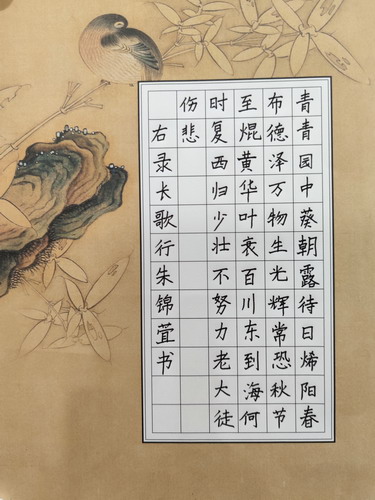 青青园中葵朝露待日烯阳春
布德泽万物生光辉常恐秋节
至焜黄华叶衰百川东到海何
时复西归少壮不努力老大徒
伤悲
右录长歌行朱锦萱书